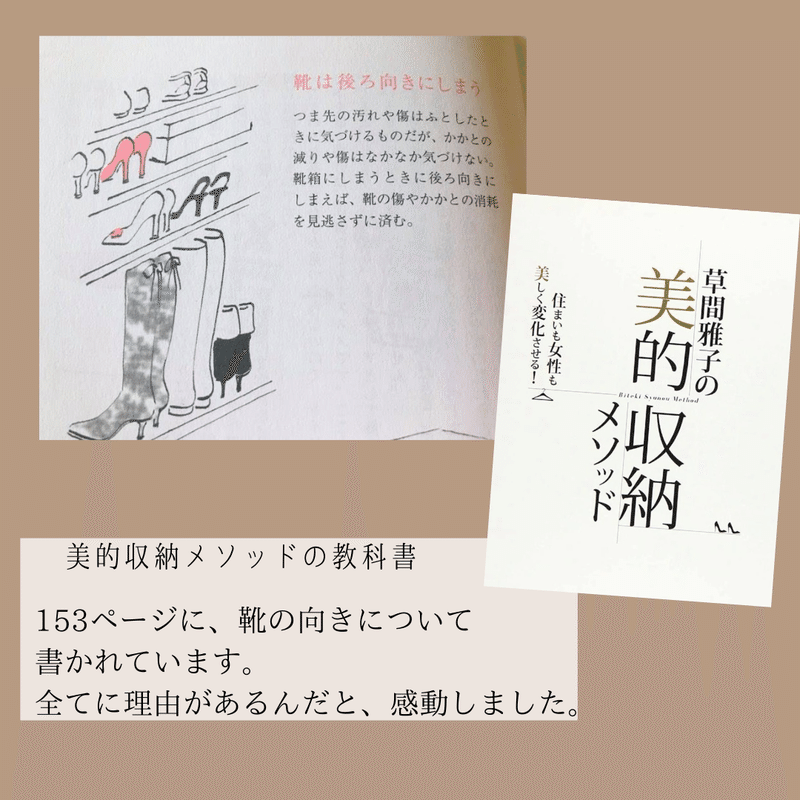 靴は後ろ向きにしまう
つま先の汚れや傷はふとしたと
きに気づけるものだが、かかとの
減りや傷はなかなか気づけない。
靴箱にしまうときに後ろ向きに
しまえば、靴の傷やかかとの消耗
を見逃さずに済む。
草間雅子の
美的収納
メソッド
Biteki Syunou Method
住まいも女性も
美しく変化させる!
美的収納メソッドの教科書
153ページに、靴の向きについて
書かれています。
全てに理由があるんだと、感動しました。